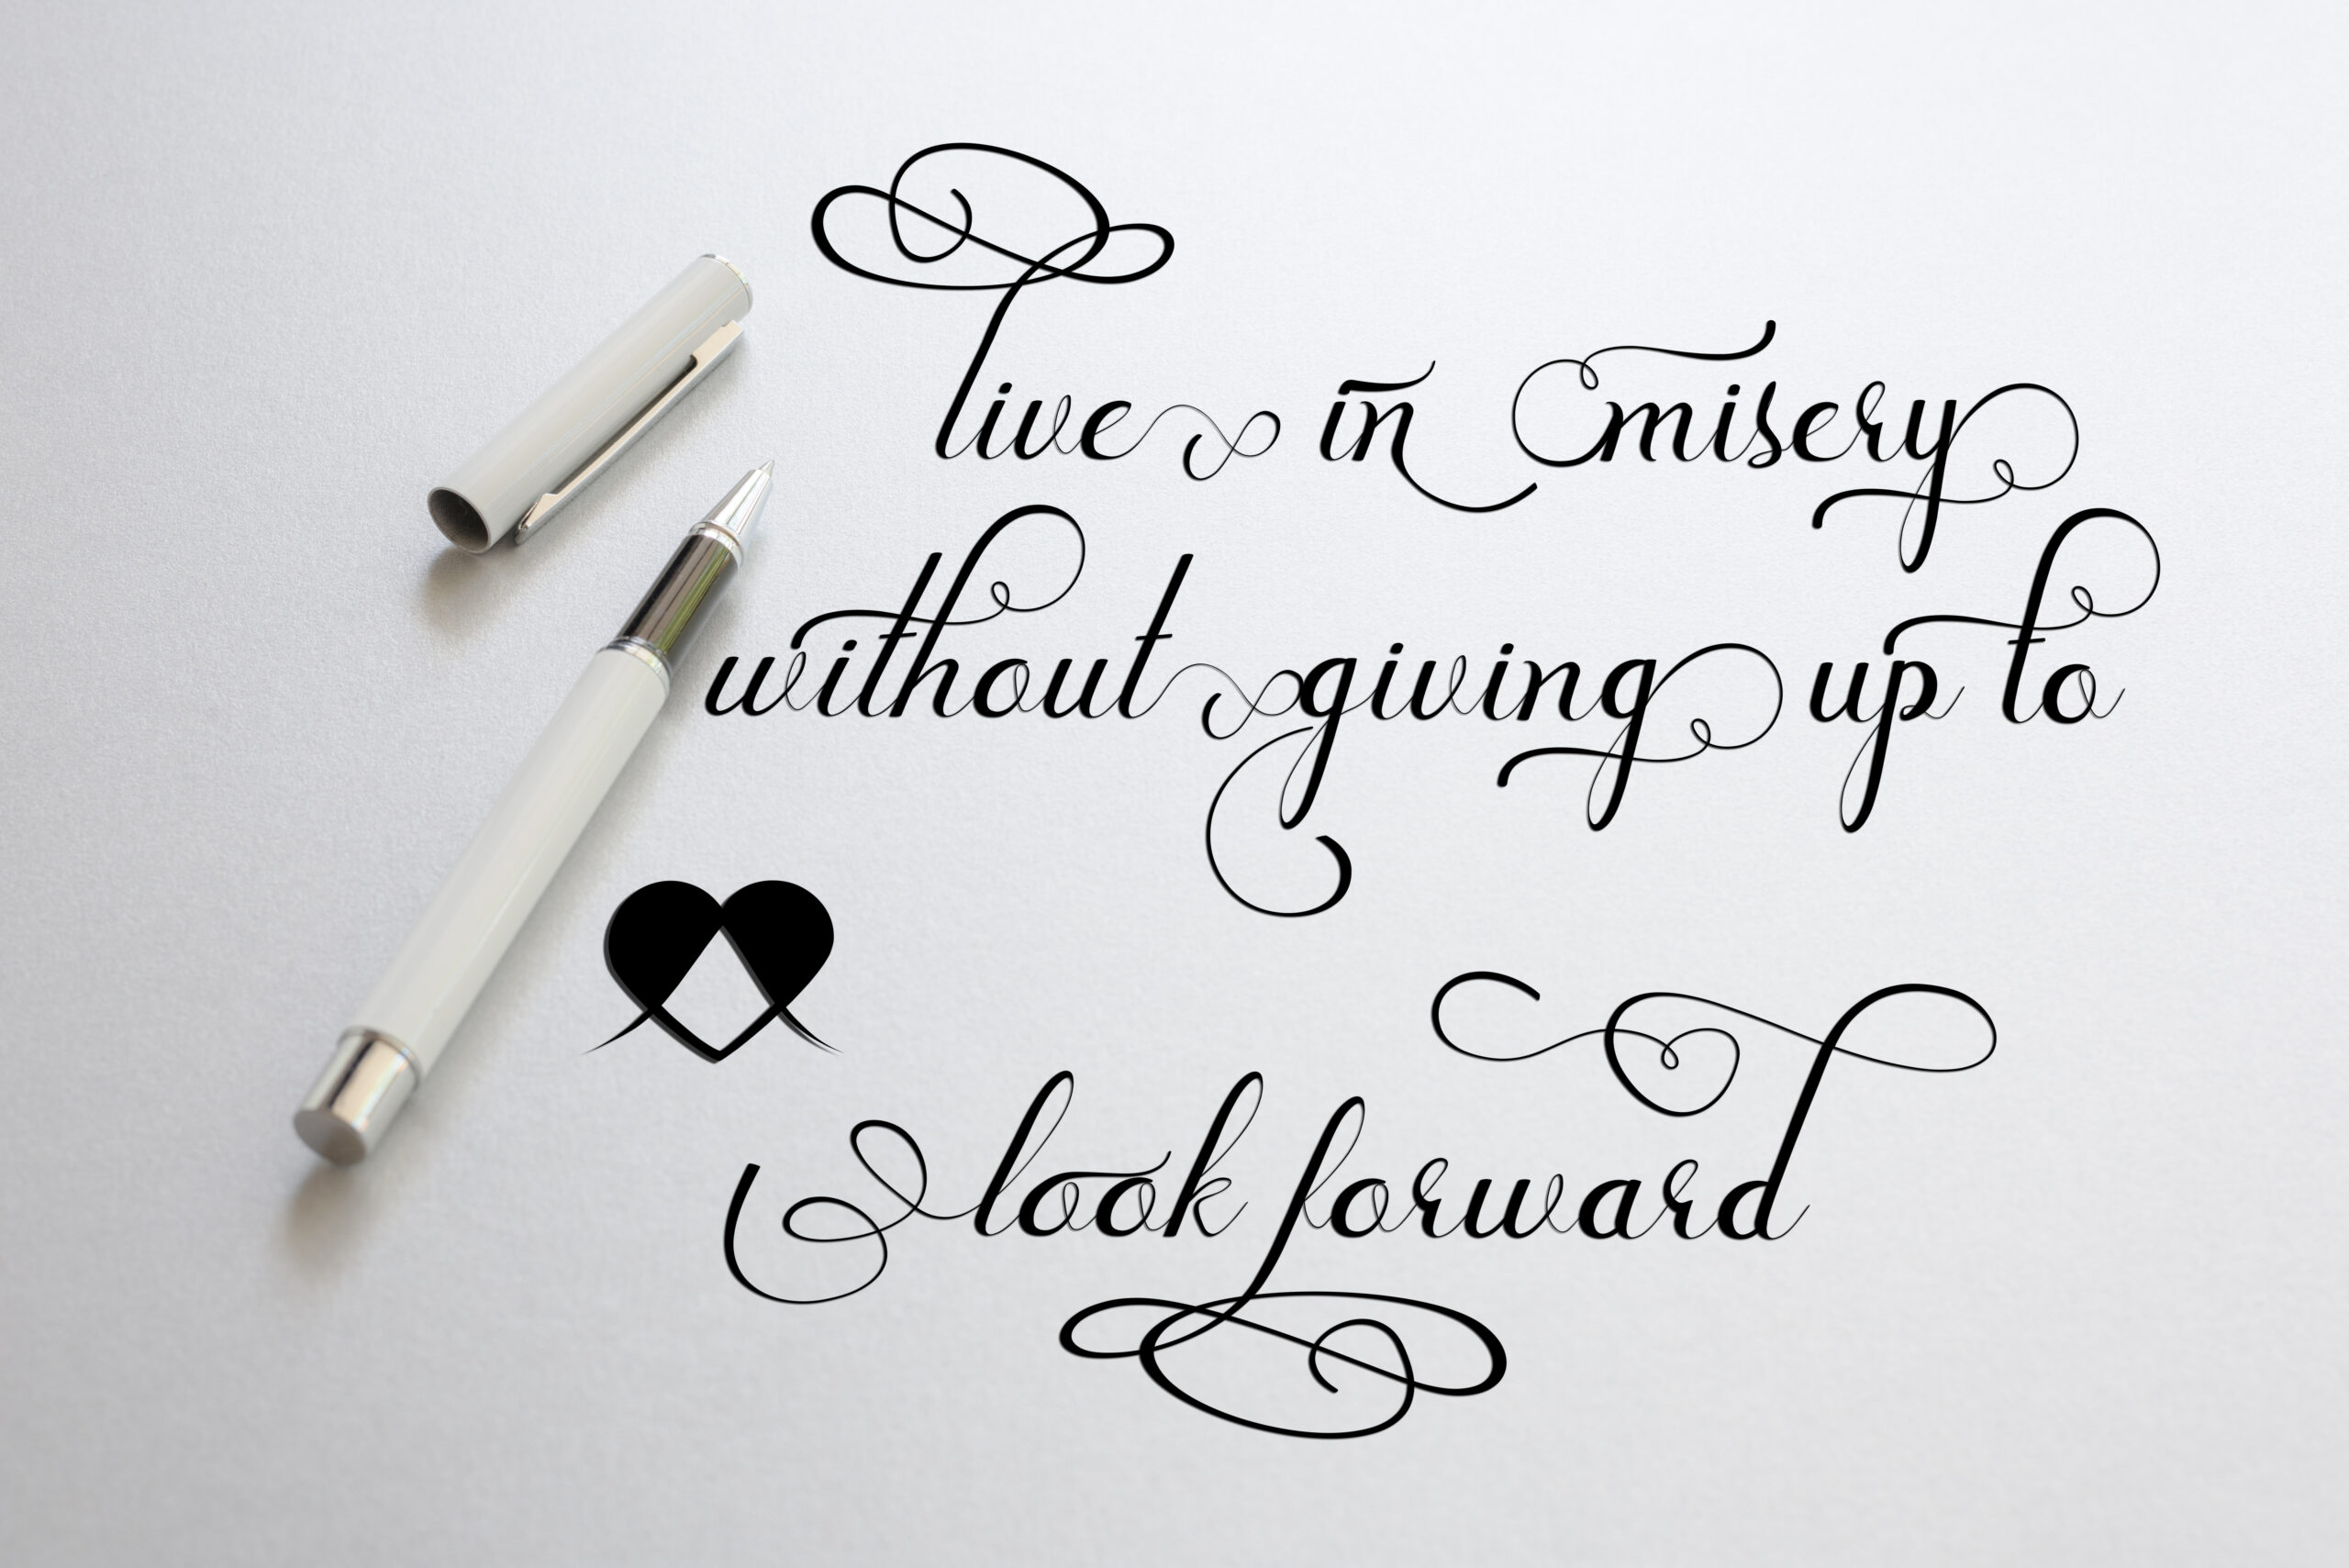 live in misery
without giving up to
look forward